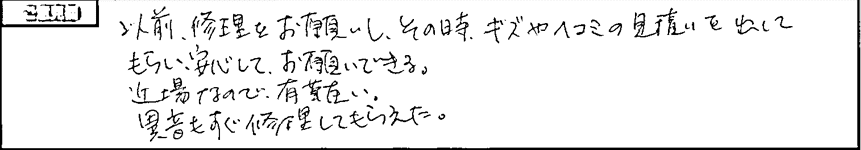 以前、修理をお願いし、その時、キズやヘコミの見積いを出して
もらい、安心して、お願いできる。
近場なので、有難い。
異音もすぐ修理してもらえた。